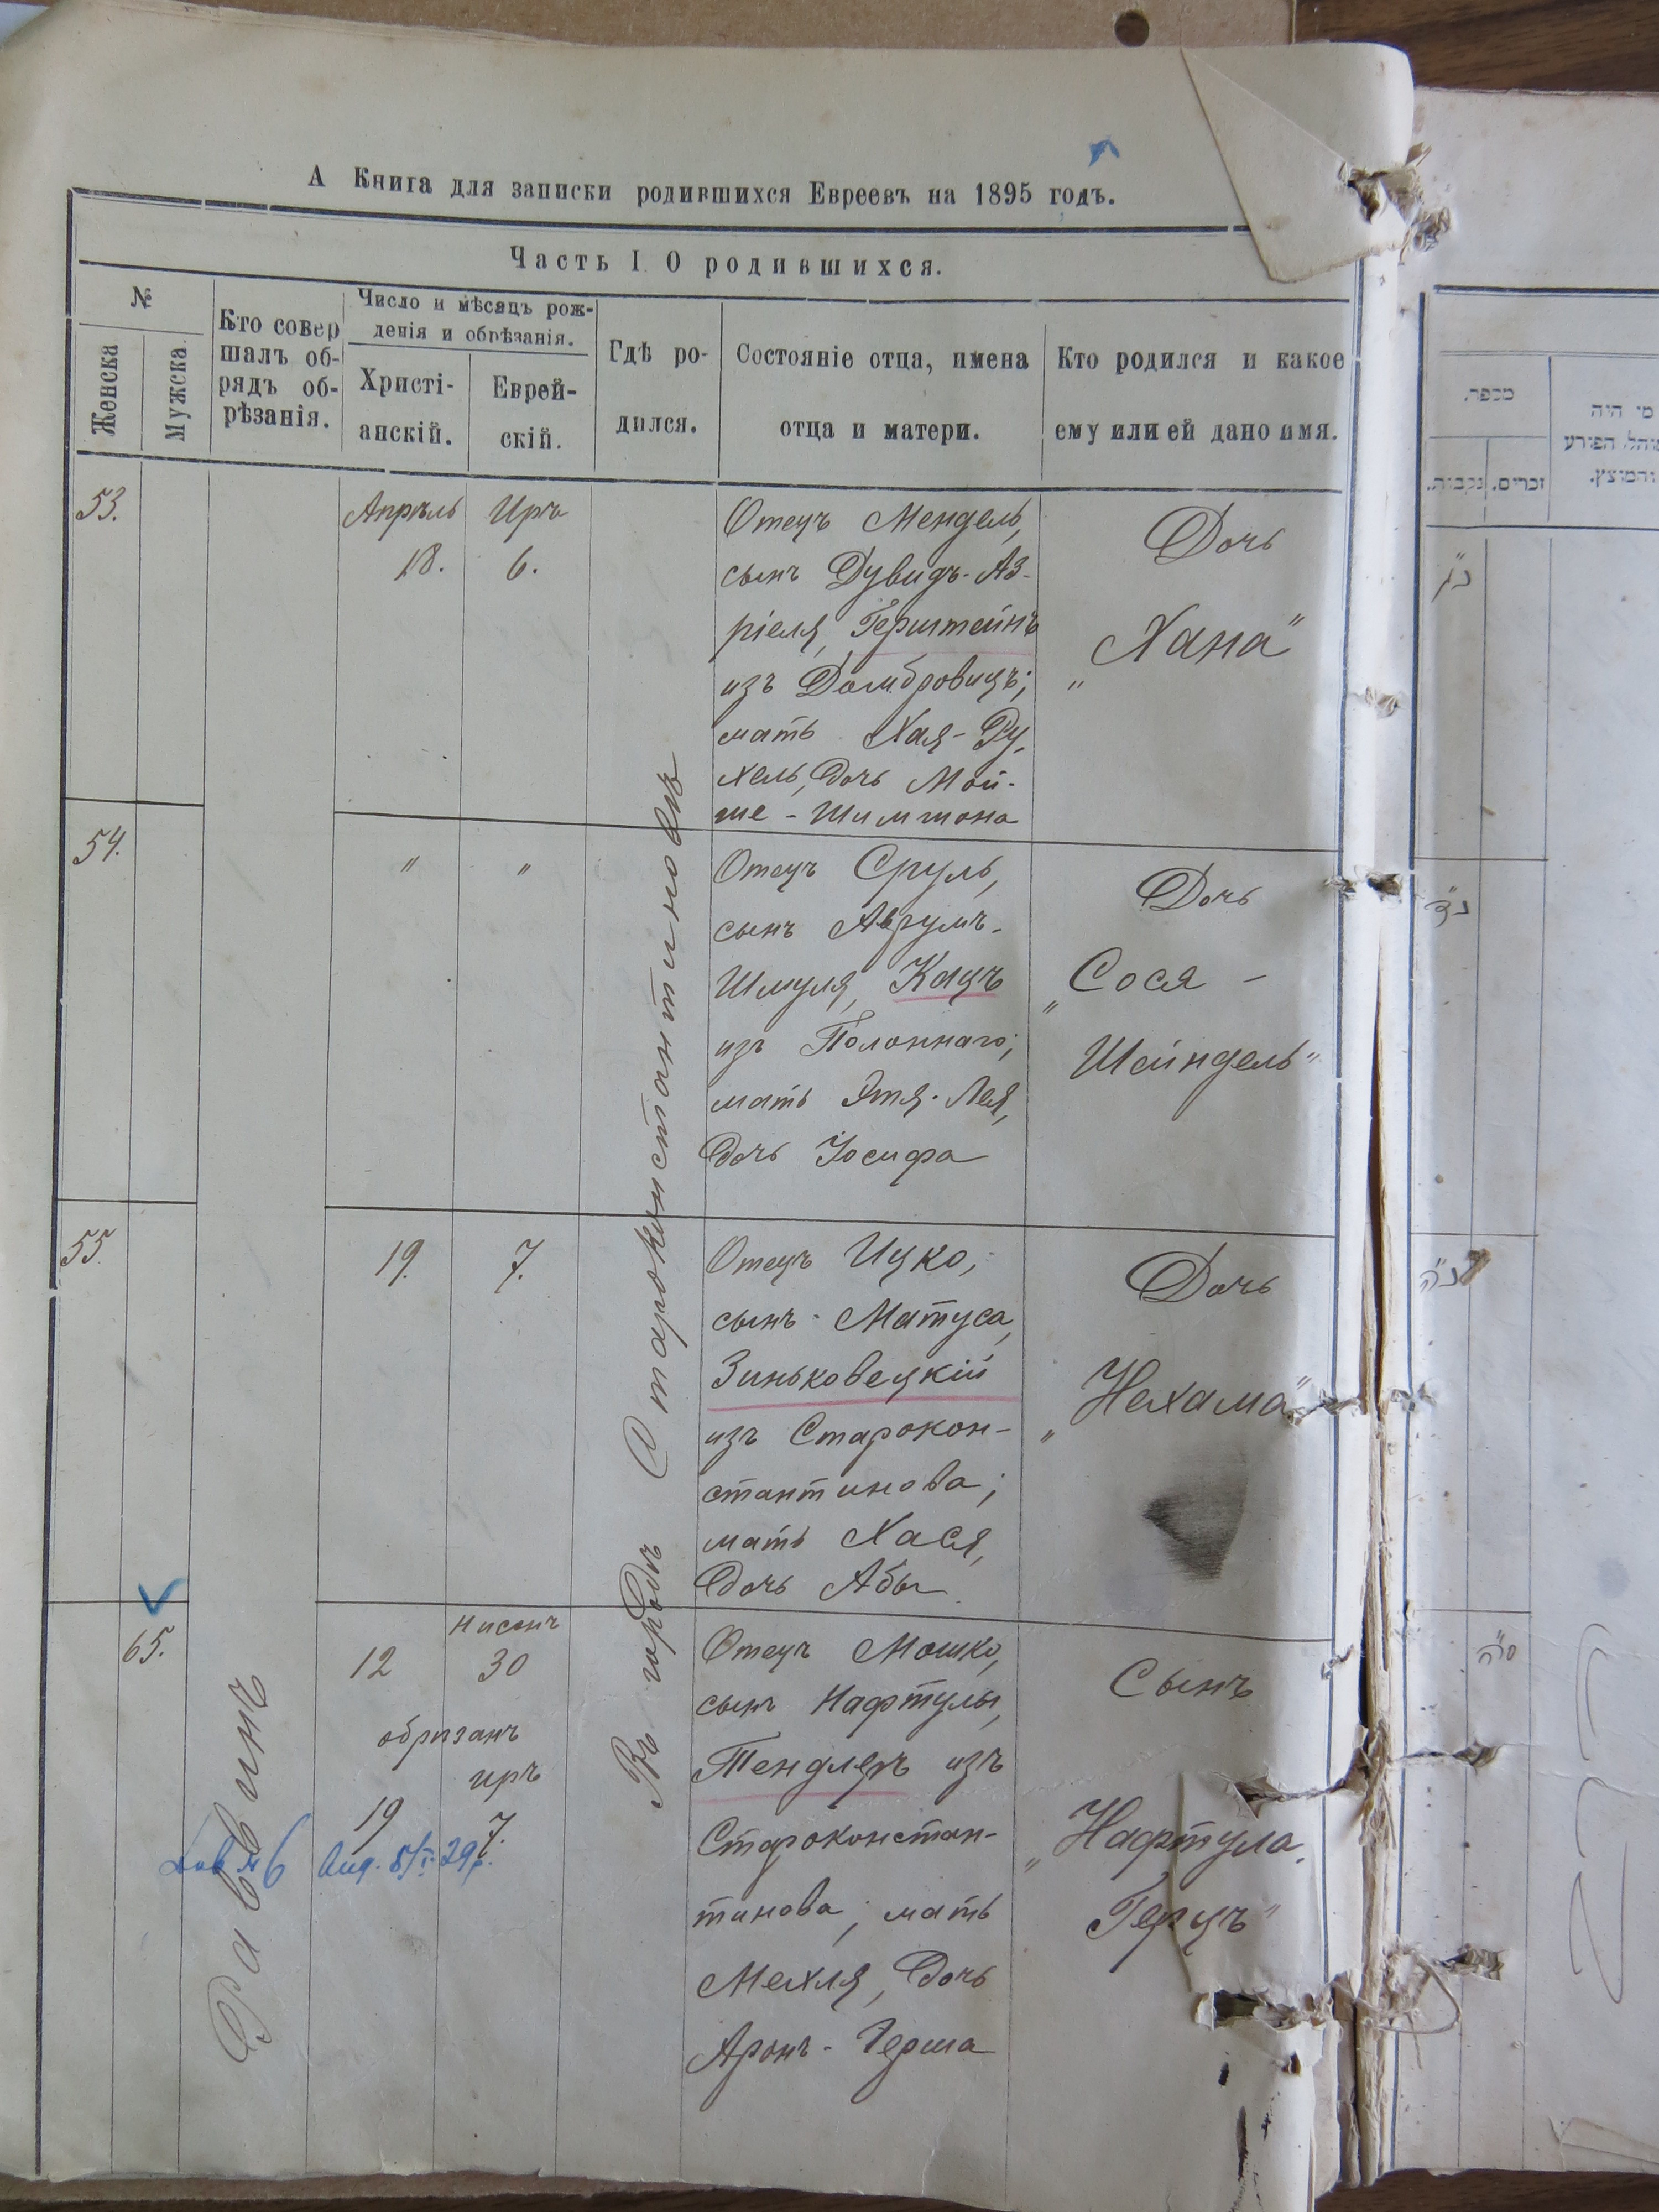 А Книга для записки родившихся Евреевъ на 1895 годъ.
Часть I О родившихся.
№
Женска
Мужска
Кто совер
шалъ об-
рядъ об-
рѣзанія.
Число и мѣсяцъ рож-
денія и обрѣзанія.
Христі-
анскій.
Еврей-
скій.
Гдѣ ро-
дился.
Состояніе отца, имена
отца и матери.
Кто родился и какое
ему или ей дано имя.
53.
Апрѣль
18.
Иръ
6.
Отецъ Мендель,
сынъ Дувидъ-Аз-
ріеля, Герштейнъ
изъ Домбровицъ;
мать Хая-Ру-
хель, дочь Мой-
ше-Шимшона
Дочь
„Хана"
54.
"
"
Отецъ Сруль,
сынъ Аврумъ-
Шмуля, Кацъ
изъ Полоннаго;
мать Этя-Лея,
дочь Іосифа
Дочь
„Сося -
Шейндель"
55
19.
7.
Отецъ Ицко,
сынъ Матуса,
Зиньковецкій
изъ Старокон-
стантинова;
мать Хася,
дочь Абы
Дочь
„Нехама"
65.
12
Нисонъ
30
обрѣзанъ
иръ
19
7.
Отецъ Мошко,
сынъ Нафтулы,
Тендлеръ изъ
Староконстан-
тинова, мать
Мехля, дочь
Аронъ-Герша
Сынъ
„Нафтула
Герцъ"
Раввинъ
Въ городѣ Староконстантиновѣ
מספר.
נקבות.
זכרים.
מי היה
והמוצץ.
נ"ג
נ"ד
נ"ה
ס"ה